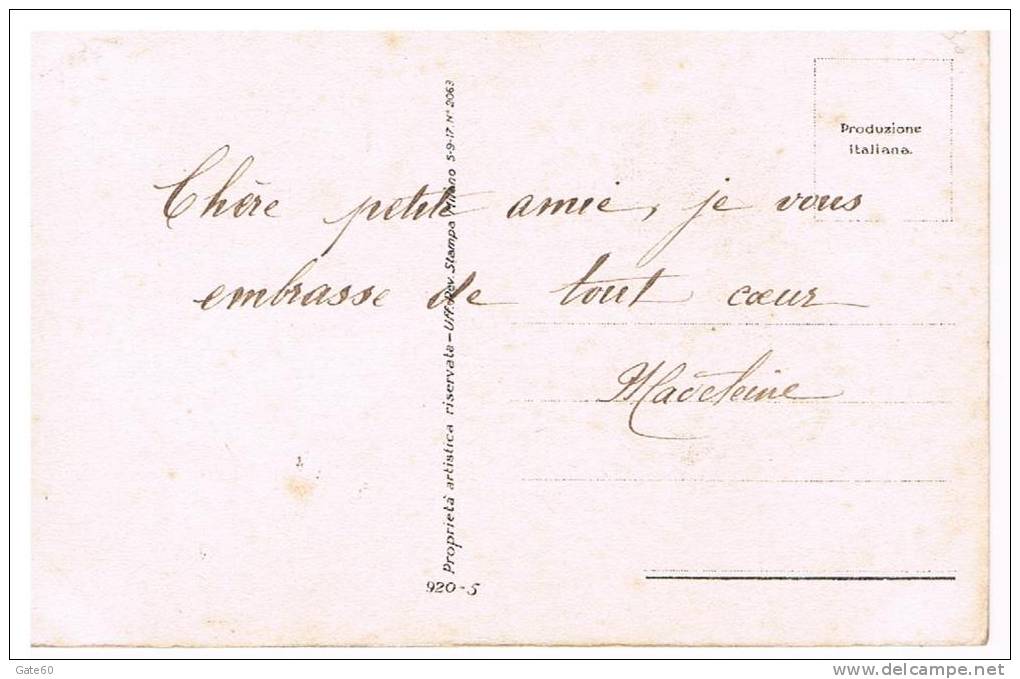 Produzione
italiana.
Chère petite amie, je vous
embrasse de tout cœur
Madeleine
Proprietà artistica riservata - Uff. Rev. Stampa Milano 5-9-17. N° 2063
920-5
Gate60
www.delcampe.net